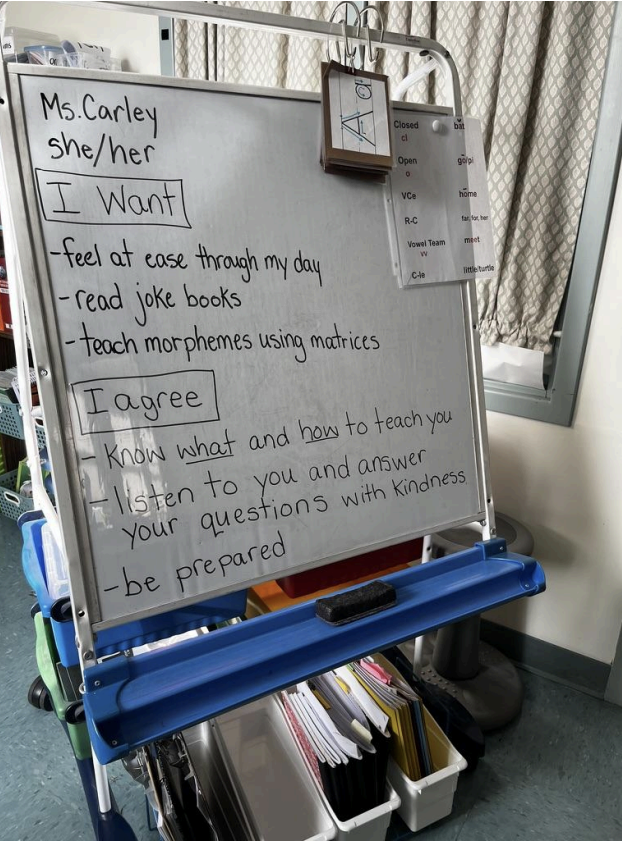 Ms. Carley
she/her
I Want
-feel at ease through my day
-read joke books
-teach morphemes using matrices
I agree
- Know what and how to teach you
- listen to you and answer
your questions with kindness.
-be prepared
Aa
Closed bat
cl
Open go/pi
o
VCe home
R-C far, for, her
Vowel Team meet
vv
C-le little/turtle